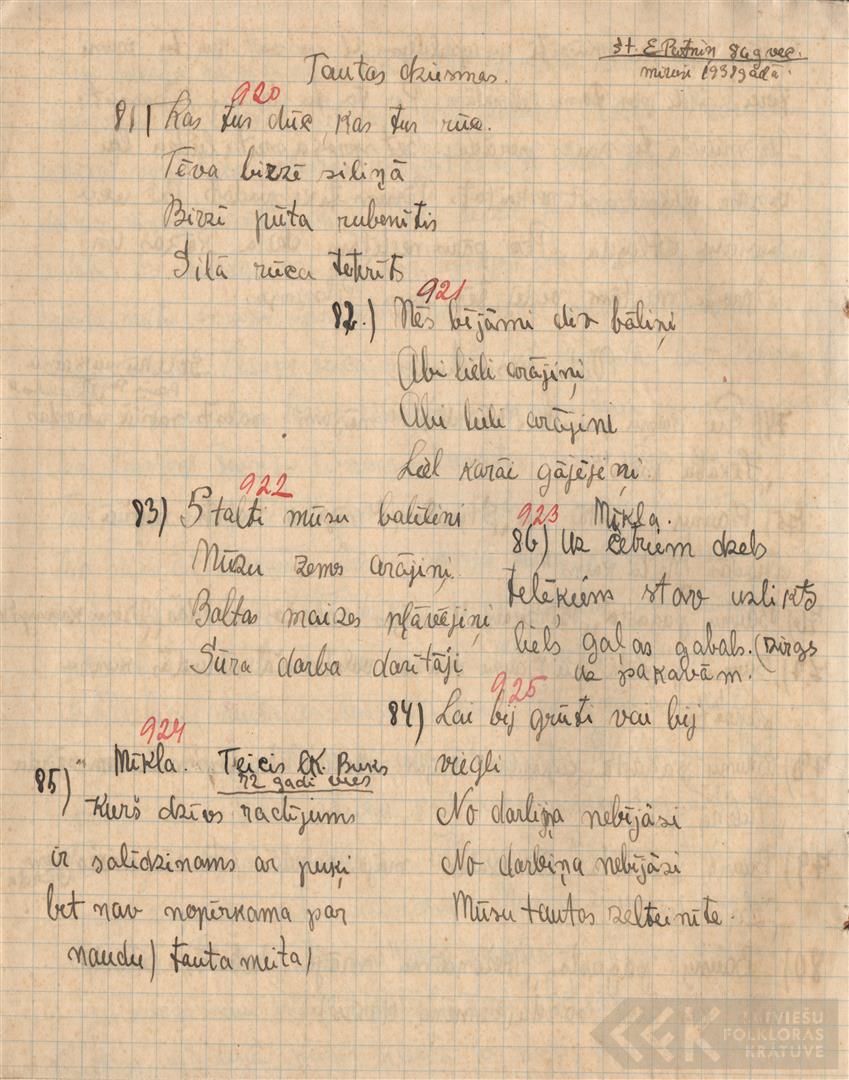 st. E Putnin 84 g vec.
mirusi 1938 gādā.
Tautas dziesmas.
920
81) Kas tur dūc kas tur rūc.
Tēva birzē siliņā
Birzī pūta rubenītis
Silā rūca teterīts
921
82.) Mēs bījāmi div bāliņi
Abi lieli arājiņi
Abi lieli arājini
Liel karai gājējeņi.
922
83) Stalti mūsu balitini
Mūzu zemes arājiņi.
Baltas maizes pļāvējiņi
Sūra darba darītāji
923 Mīkla.
86) Uz četriem dzels
telēķiems stav uzlikts
liels gaļas gabals. (Dirgs
uz pakavām.
925
84) Lai bij grūti vai bij
viegli
No darbiņa nebījāsi
No darbiņa nebījāsi
Mūsu tautas zelteinīte.
924
85) Mīkla. Teicis K. Buks
72 gadi vecs
Kurš dzīvs radījums
ir salīdzinams ar puķi
bet nav nopērkama par
naudu) tauta meita)
LATVIEŠU
FOLKLORAS
KRĀTUVE